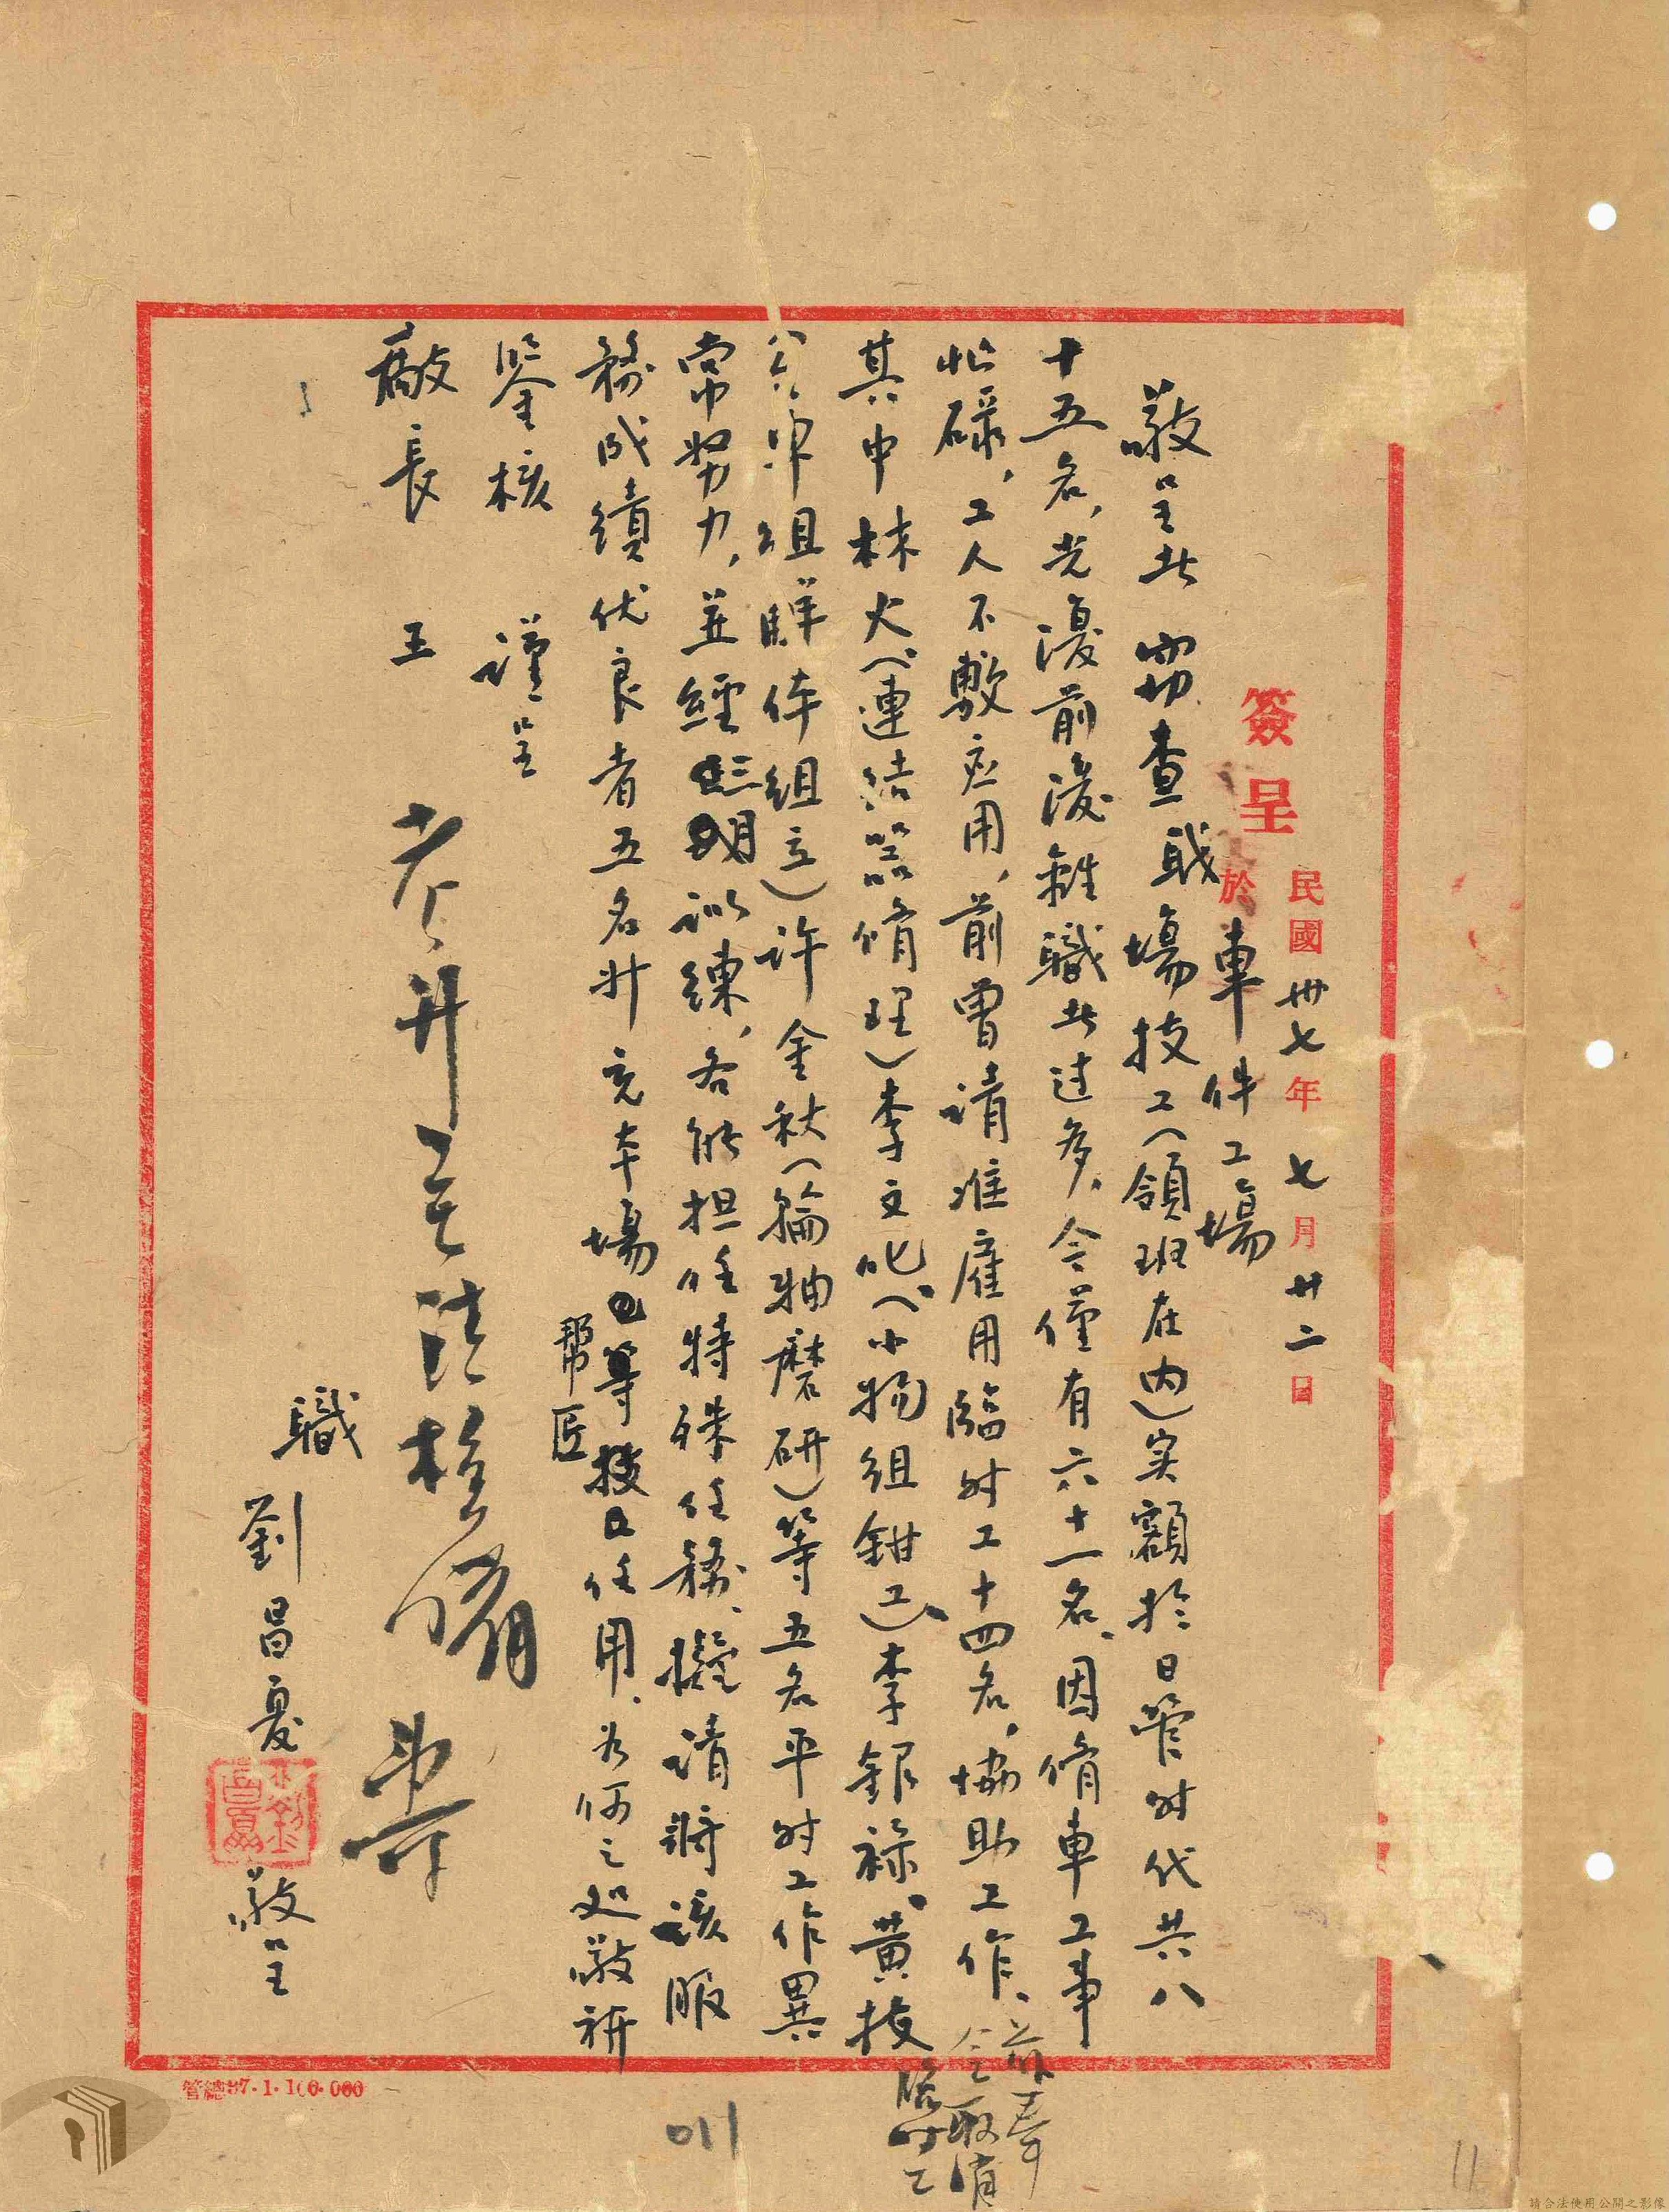 簽呈 民國卅七年七月廿二日
於車件工場
敬呈者 竊查戝場技工(領班在內)实額於日管时代共八
十五名,光復前後離職者过多,今僅有六十一名、因修車工事
忙碌,工人不敷应用,前曾請准雇用臨时工十四名,協助工作、茲奉
令取消
臨时工
其中林火(連结器修理)李文叱(小物組鉗工)李銀祿、黃枝
(組立)许金秋(輪軸磨研)等五名平时工作異
常努力,並經訓練,各能担任特殊任務、擬請將該服
務成績优良者五名升充本場等任用、为何之处敬祈
幫匠
鑒核 謹呈
廠長 王
職 劉昌夏 敬呈
管總37·1·100·000
011
11
請合法使用公開之影像